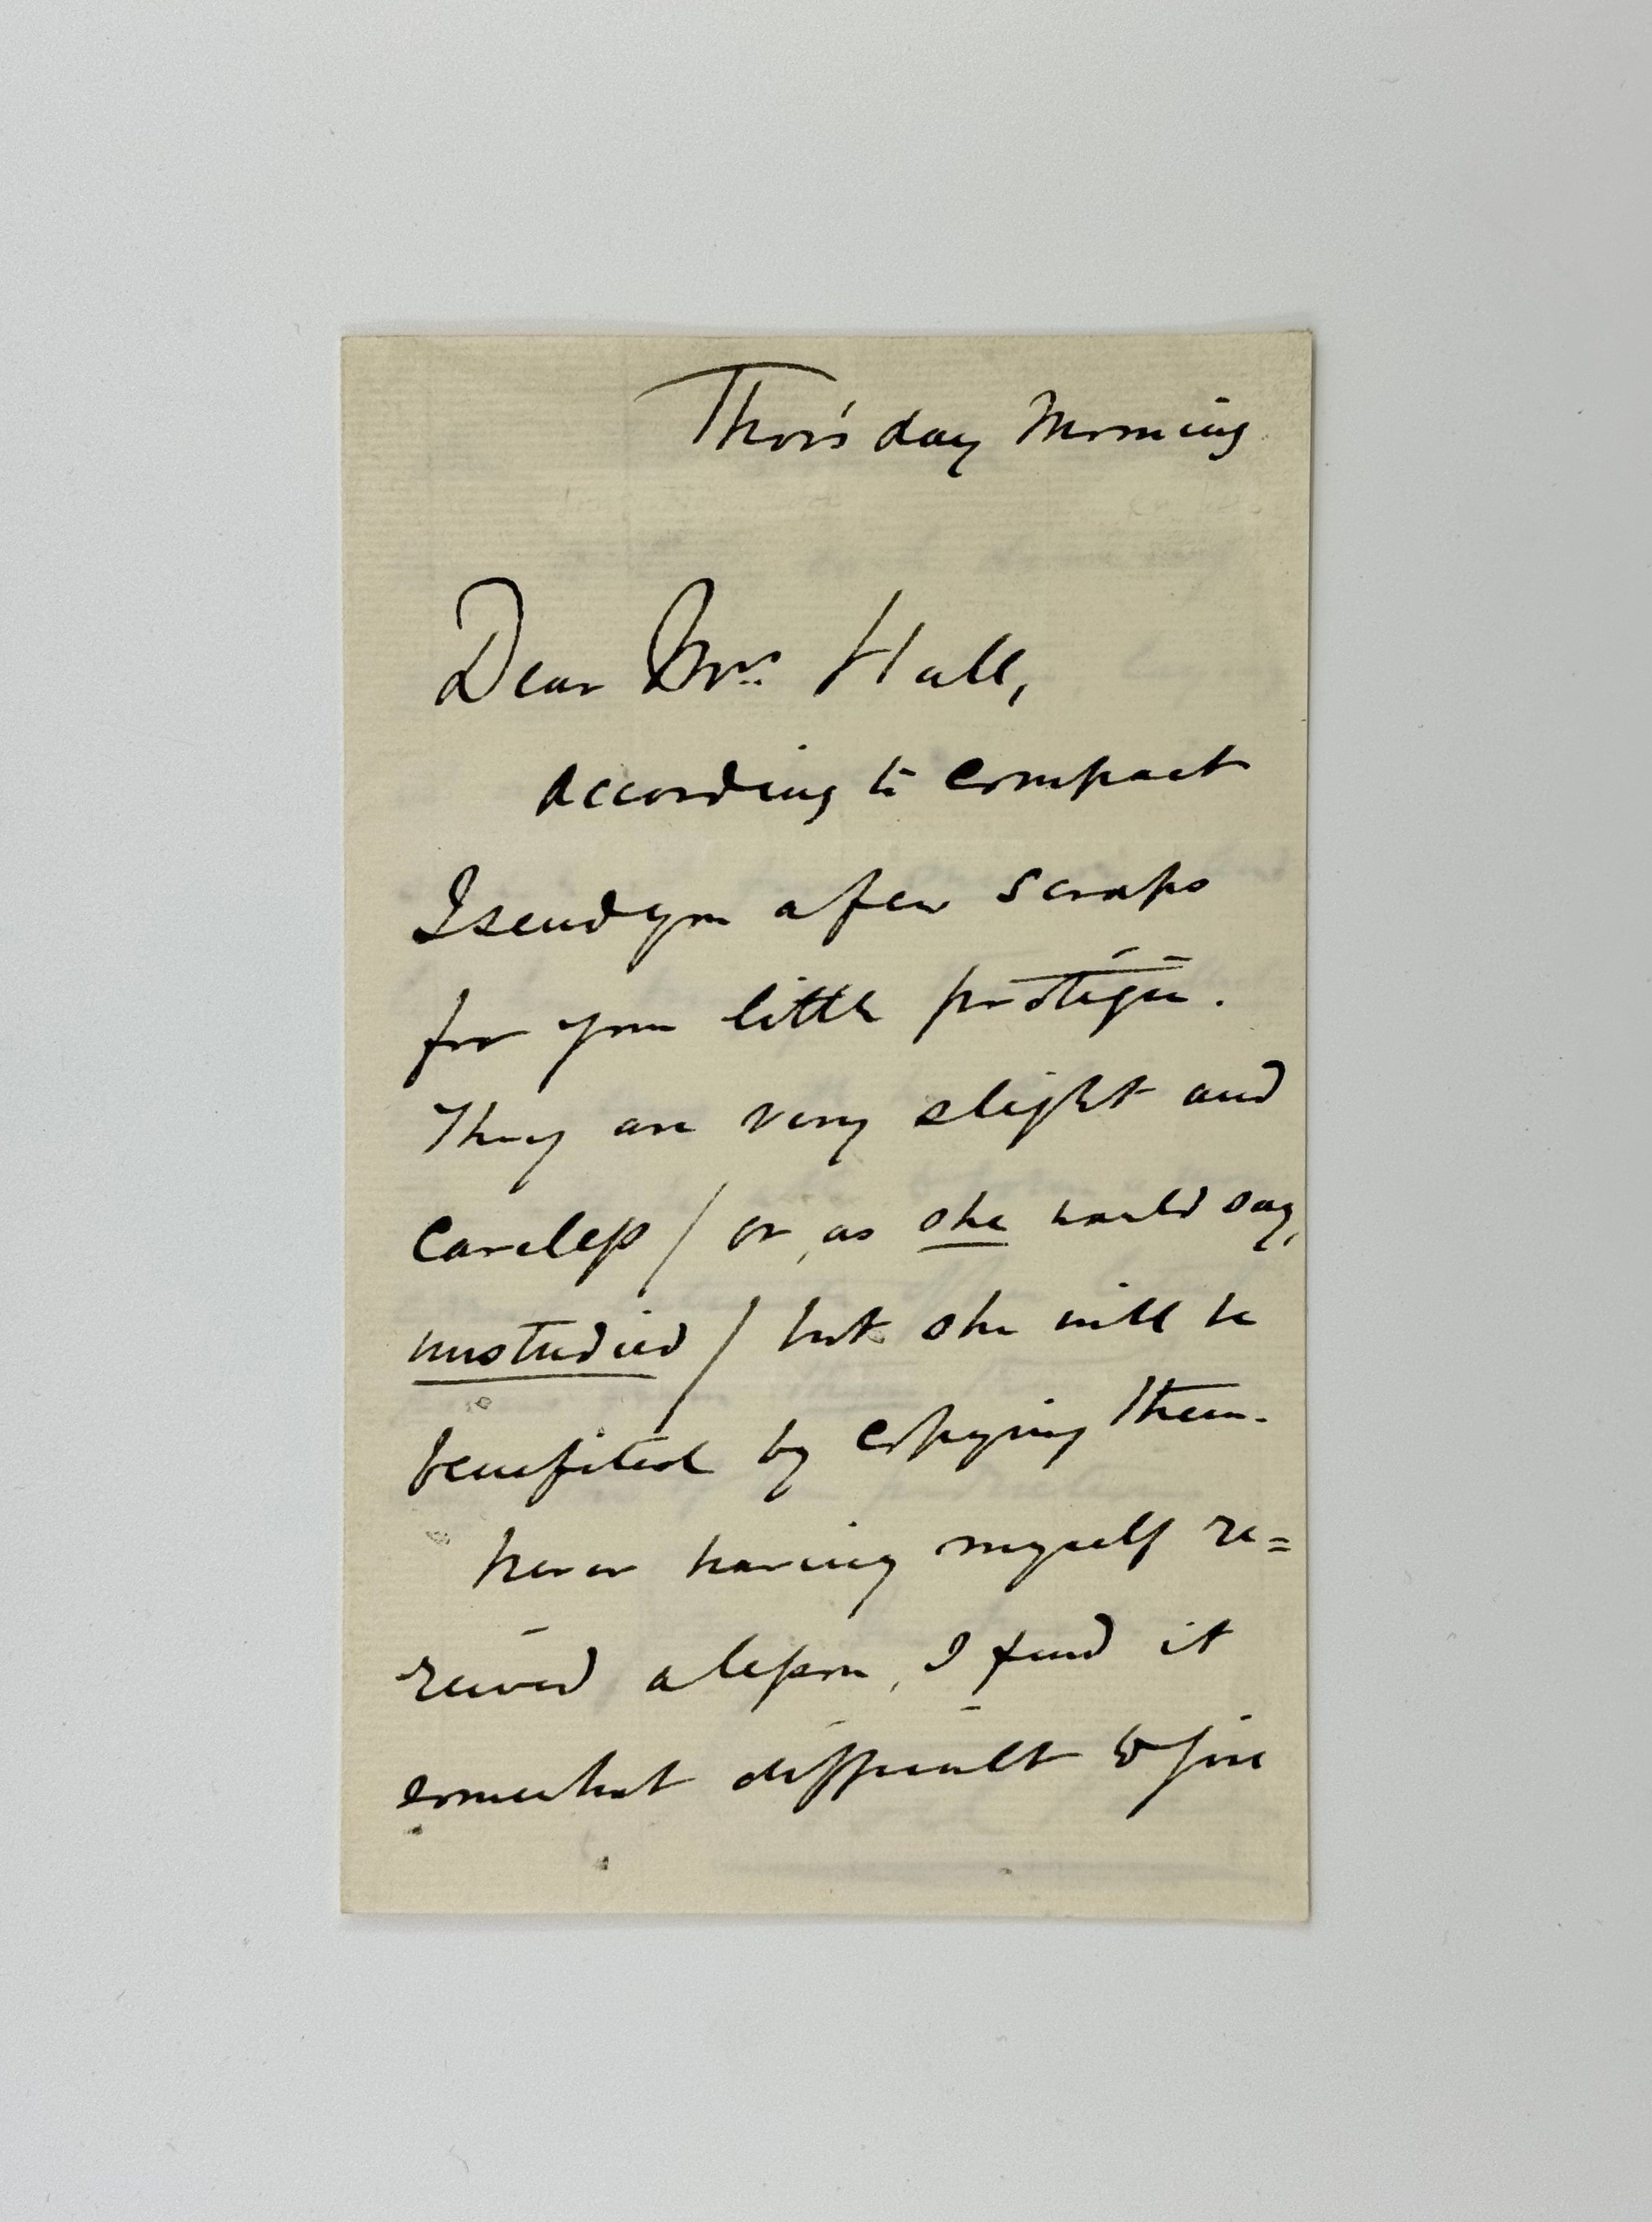 Thor's day Morning
Dear Mrs. Hall,
According to compact
I send you a few scraps
for your little protégée.
They are very slight and
careless / or, as she would say,
unstudied / but she will be
benefited by copying them.
Never having myself re=
ceived a lesson, I find it
somewhat difficult to give